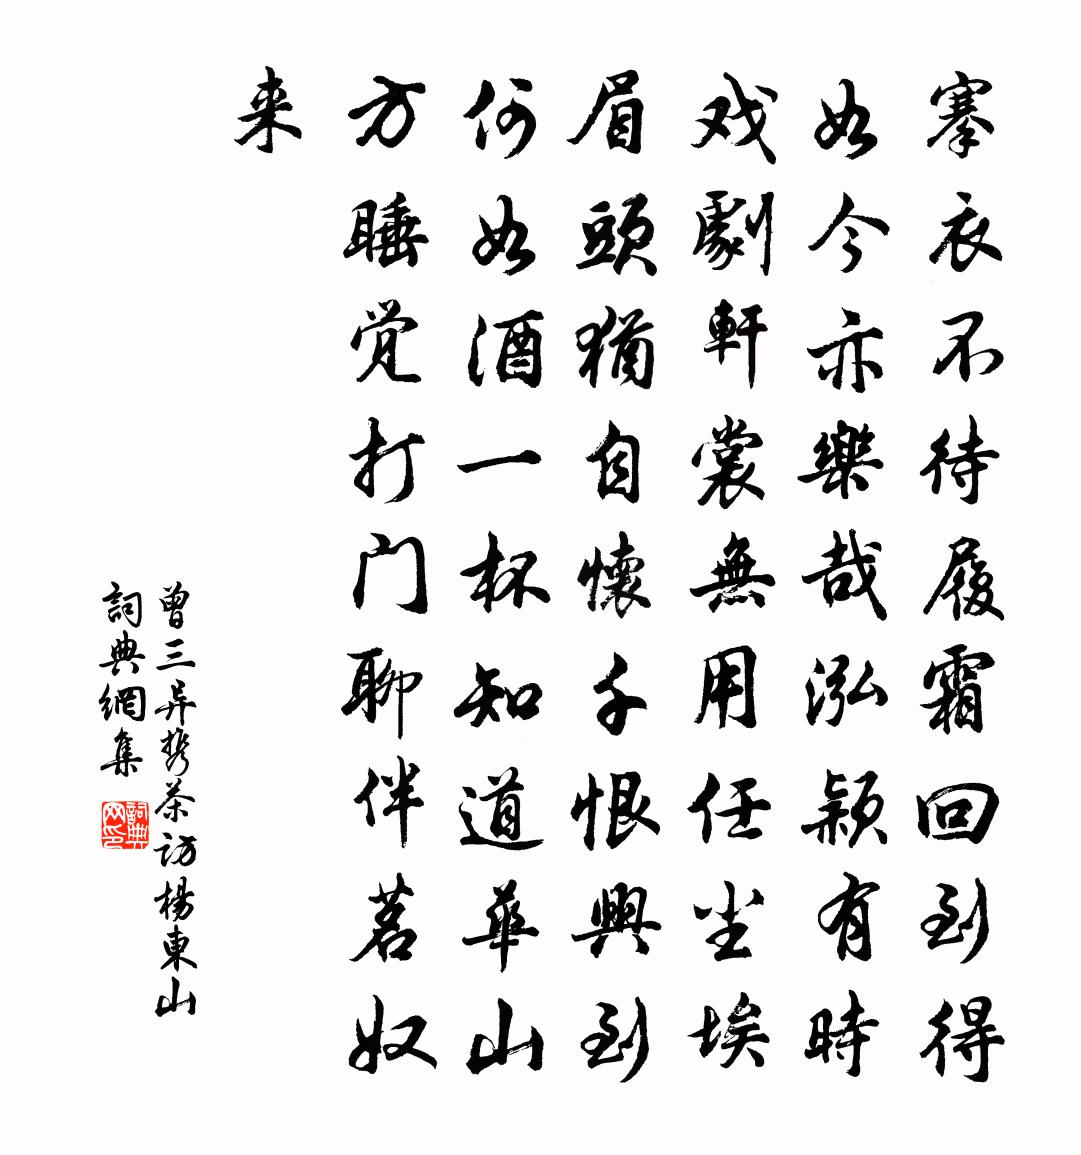 搴衣不待履霜回到得
如今亦樂哉泓颖有時
戏劇軒裳無用任尘埃
眉頭猶自懷千恨興到
何如酒一杯知道華山
方睡觉打门聊伴茗奴
来
曾三异携茶访楊東山
詞典網集
詞典网印